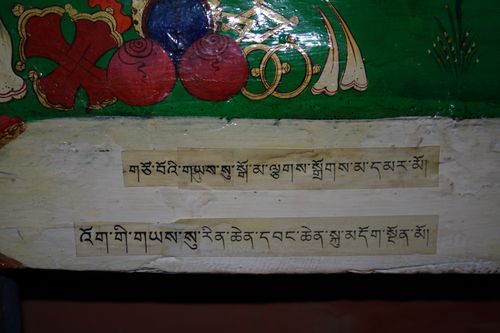 གཙོ་བོའི་གཡས་སུ་སྒོ་མ་ལྕགས་སྒྲོགས་མ་དམར་མོ།
འོག་གི་གཡས་སུ་རིན་ཆེན་དབང་ཆེན་སྐུ་མདོག་སྔོན་མོ།